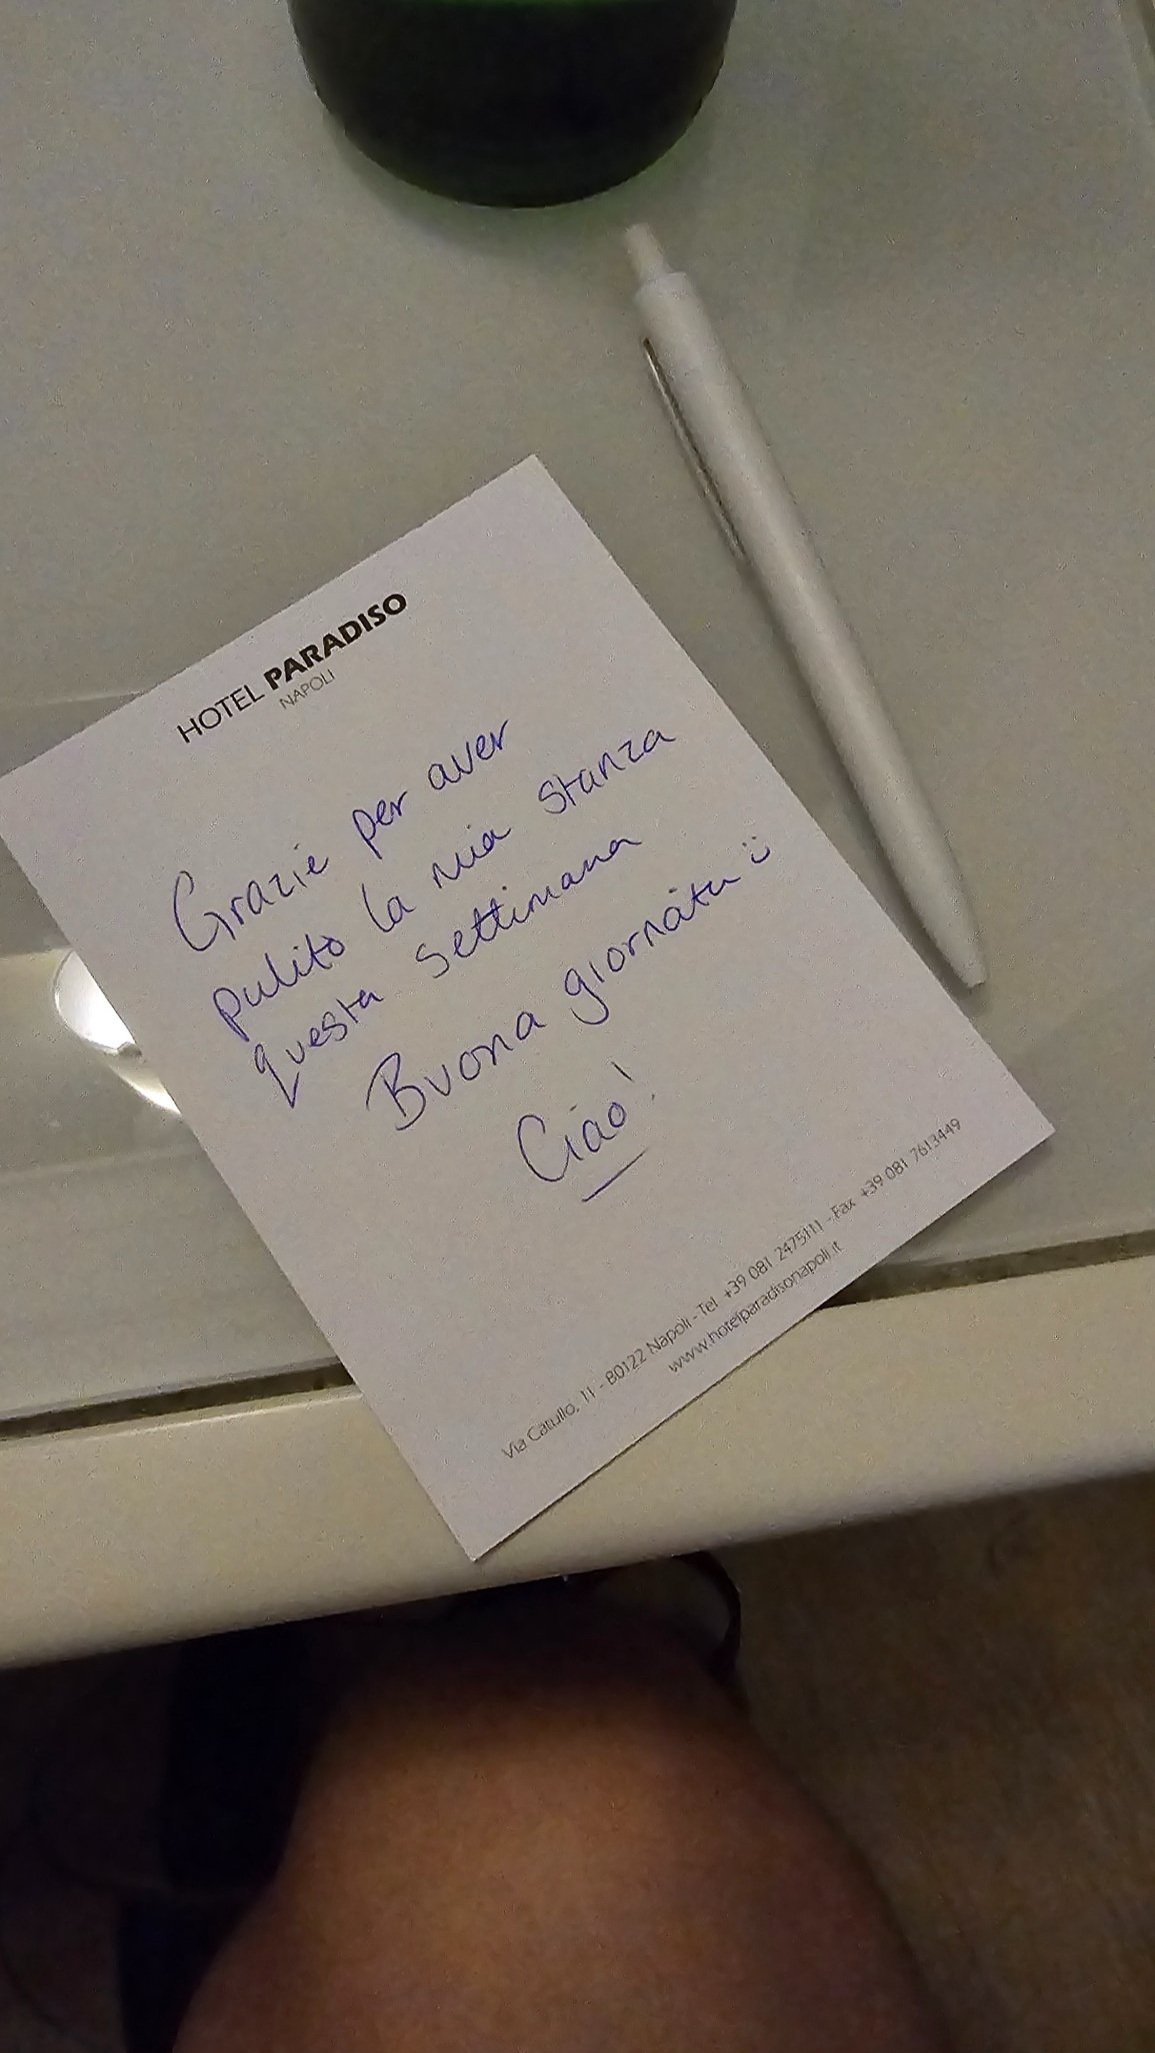 HOTEL PARADISO
NAPOLI
Grazie per aver
pulito la mia stanza
questa settimana
Buona giornata :)
Ciao!
Via Catullo, 11 - 80122 Napoli - Tel +39 081 2475111 - Fax +39 081 7613449
www.hotelparadisonapoli.it